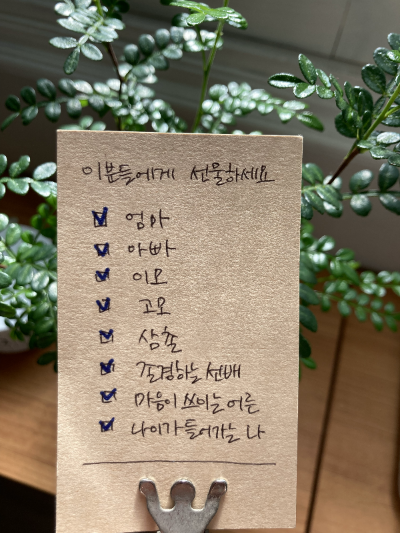 이분들에게 선물하세요
엄마
아빠
이모
고모
삼촌
존경하는 선배
마음이 쓰이는 어른
나이가 들어가는 나